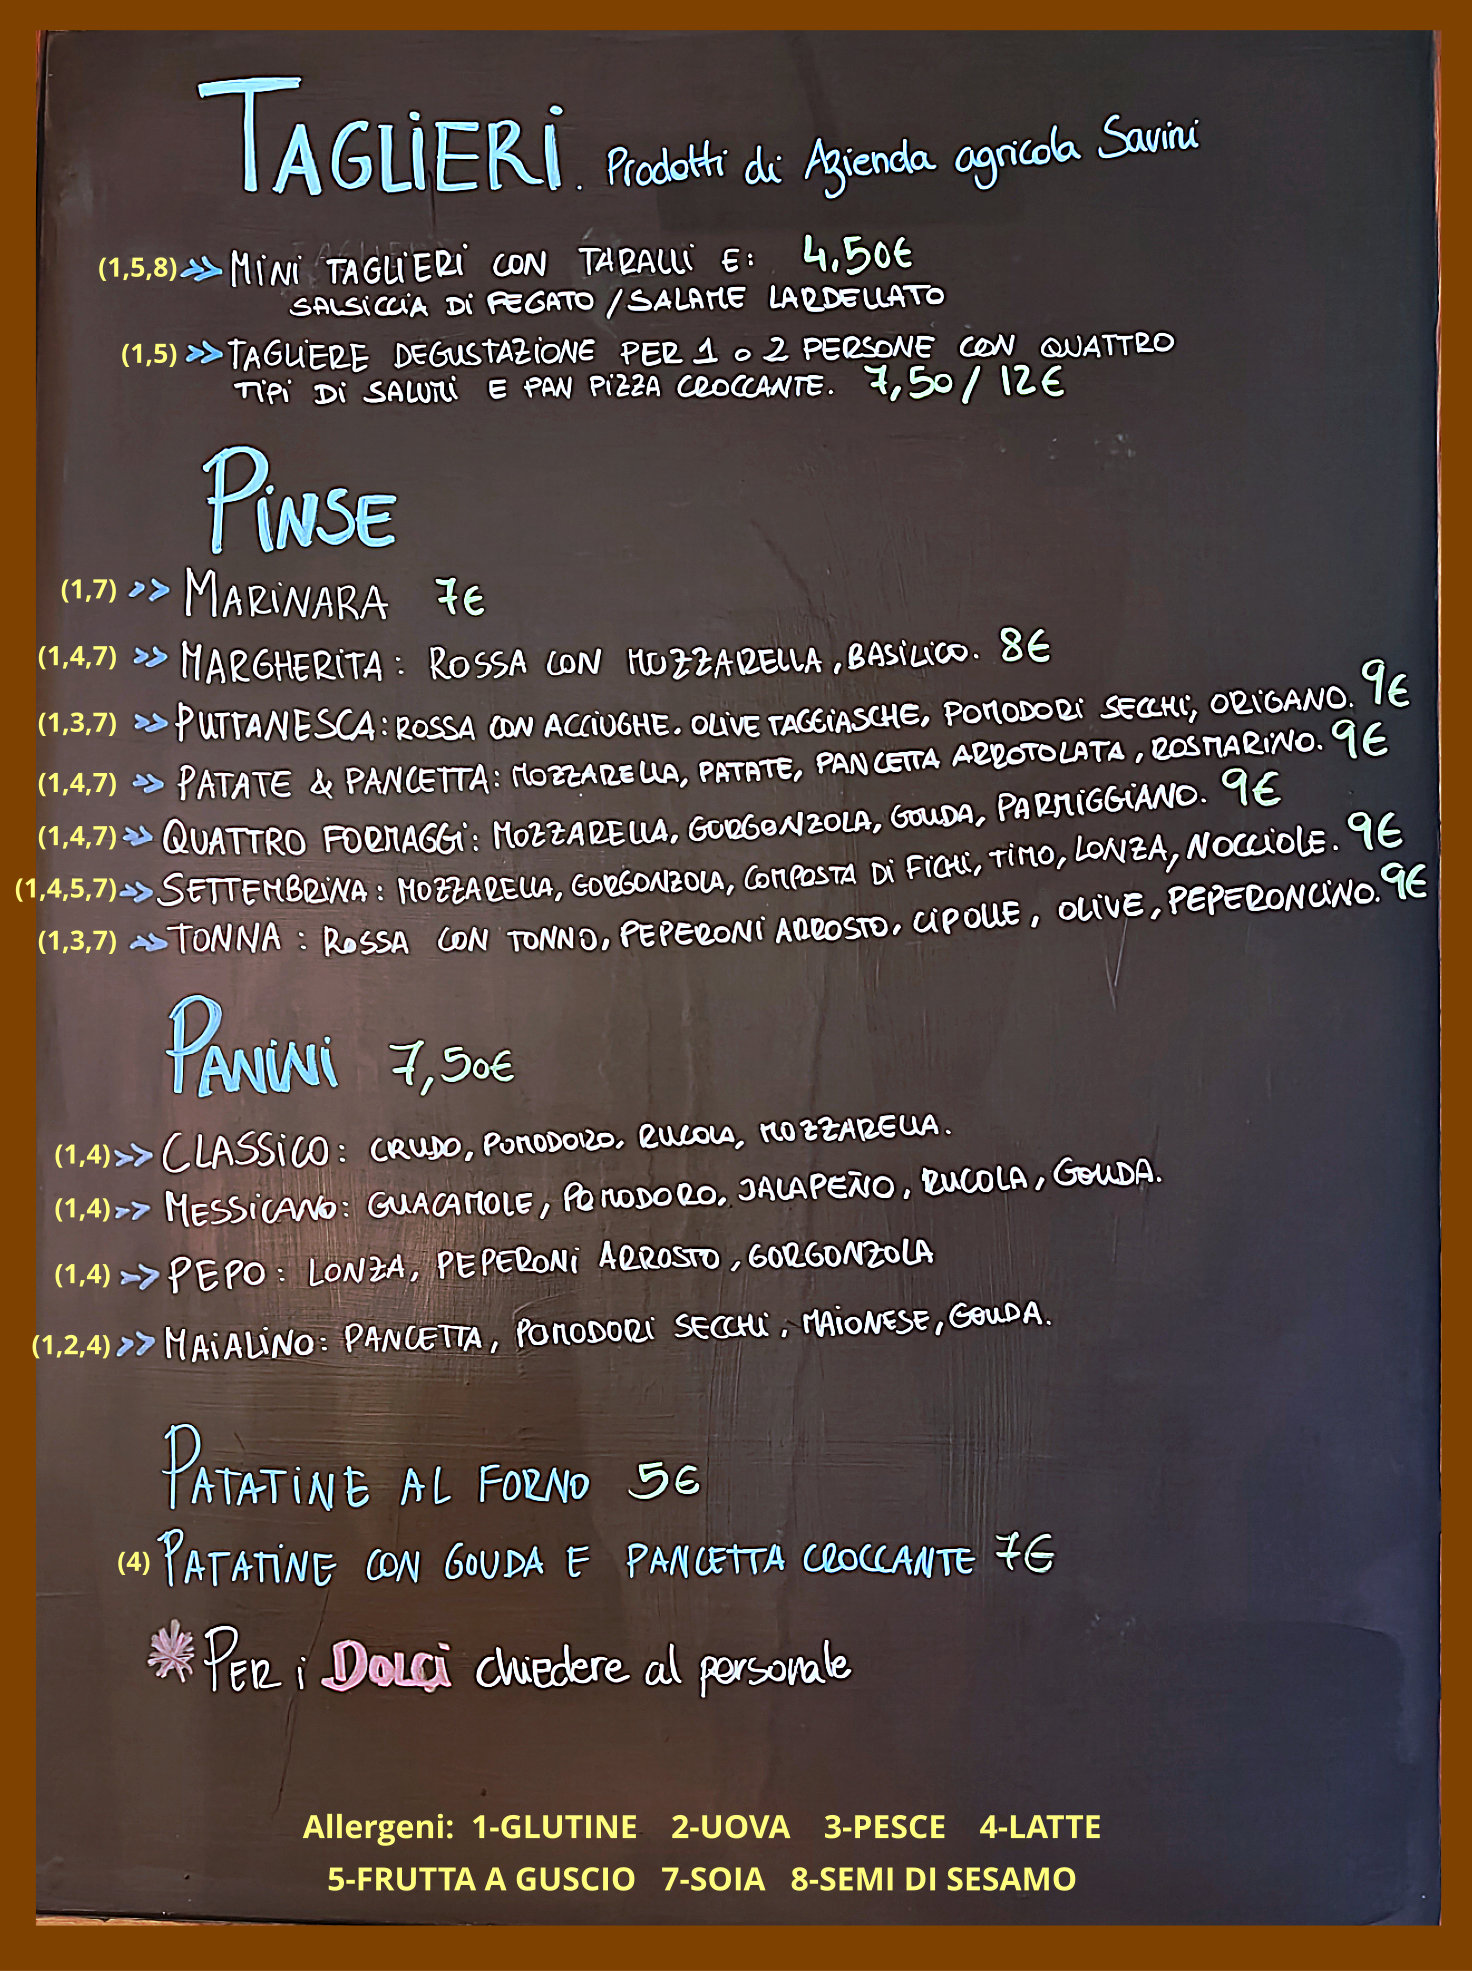 TAGLIERI. Prodotti di Azienda agricola Savini
(1,5,8) >> MINI TAGLIERI CON TARALLI E: 4,50€
SALSICCIA DI FEGATO / SALAME LARDELLATO
(1,5) >> TAGLIERE DEGUSTAZIONE PER 1 o 2 PERSONE CON QUATTRO
TIPI DI SALUMI E PAN PIZZA CROCCANTE. 7,50 / 12€
PINSE
(1,7) >> MARINARA 7€
(1,4,7) >> MARGHERITA: ROSSA CON MOZZARELLA, BASILICO. 8€
(1,3,7) >> PUTTANESCA: ROSSA CON ACCIUGHE. OLIVE TAGGIASCHE, POMODORI SECCHI, ORIGANO. 9€
(1,4,7) >> PATATE & PANCETTA: MOZZARELLA, PATATE, PANCETTA ARROTOLATA, ROSMARINO. 9€
(1,4,7) >> QUATTRO FORMAGGI: MOZZARELLA, GORGONZOLA, GOUDA, PARMIGGIANO. 9€
(1,4,5,7) >> SETTEMBRINA: MOZZARELLA, GORGONZOLA, COMPOSTA DI FICHI, TIMO, LONZA, NOCCIOLE. 9€
(1,3,7) >> TONNA: ROSSA CON TONNO, PEPERONI ARROSTO, CIPOLLE, OLIVE, PEPERONCINO. 9€
PANINI 7,50€
(1,4) >> CLASSICO: CRUDO, POMODORO, RUCOLA, MOZZARELLA.
(1,4) >> MESSICANO: GUACAMOLE, POMODORO, JALAPEÑO, RUCOLA, GOUDA.
(1,4) >> PEPO: LONZA, PEPERONI ARROSTO, GORGONZOLA
(1,2,4) >> MAIALINO: PANCETTA, POMODORI SECCHI, MAIONESE, GOUDA.
PATATINE AL FORNO 5€
(4) PATATINE CON GOUDA E PANCETTA CROCCANTE 7€
* PER i DOLCI chiedere al personale
Allergeni: 1-GLUTINE 2-UOVA 3-PESCE 4-LATTE
5-FRUTTA A GUSCIO 7-SOIA 8-SEMI DI SESAMO